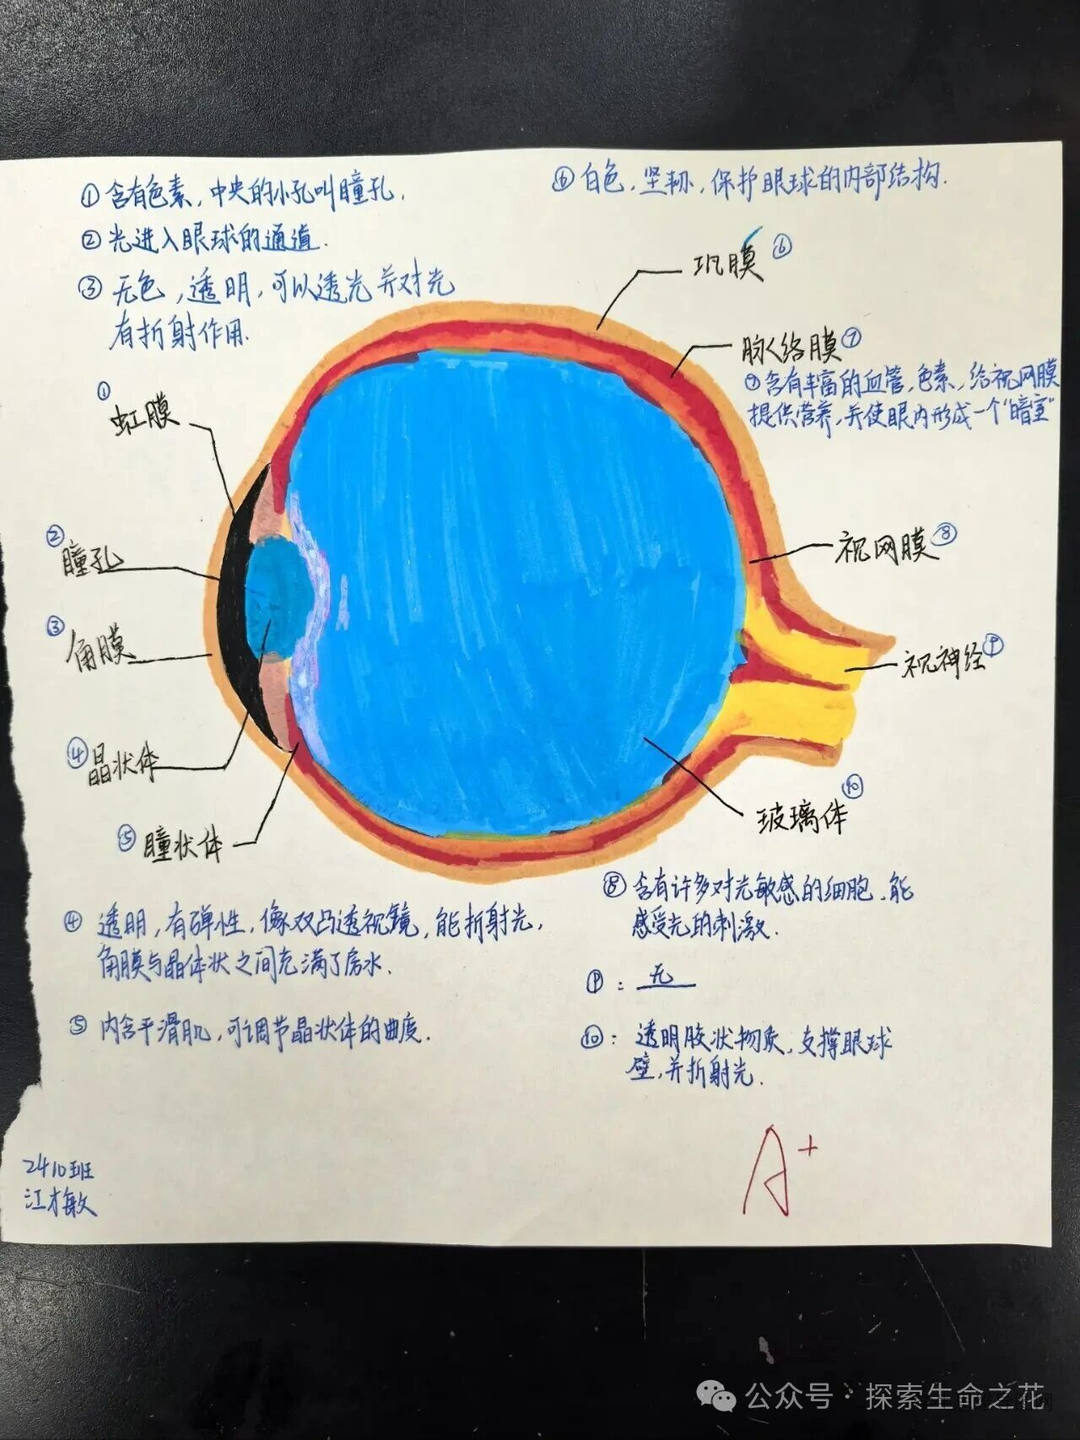 ① 含有色素，中央的小孔叫瞳孔.
② 光进入眼球的通道.
③ 无色，透明，可以透光并对光
有折射作用.
⑥ 白色，坚韧，保护眼球的内部结构.
巩膜 ⑥
脉络膜 ⑦
⑦ 含有丰富的血管，色素，给视网膜
提供营养，并使眼内形成一个“暗室”
①
虹膜
②
瞳孔
③
角膜
④ 晶状体
⑤ 瞳状体
视网膜 ⑧
视神经 ⑨
玻璃体 ⑩
④ 透明，有弹性，像双凸透视镜，能折射光，
角膜与晶体状之间充满了房水.
⑤ 内含平滑肌，可调节晶状体的曲度.
⑧ 含有许多对光敏感的细胞，能
感受光的刺激.
⑨：无
⑩：透明胶状物质，支撑眼球
壁，并折射光.
A+
2410班
江梅敏
公众号·探索生命之花